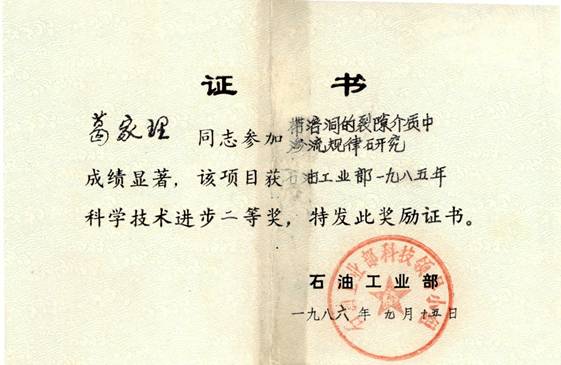 证 书
葛家理 同志参加 带溶洞的裂隙介质中
渗流规律研究
成绩显著，该项目获石油工业部一九八五年
科学技术进步二等奖，特发此奖励证书。
石油工业部
一九八六年九月十五日
石油工业部科技领导小组